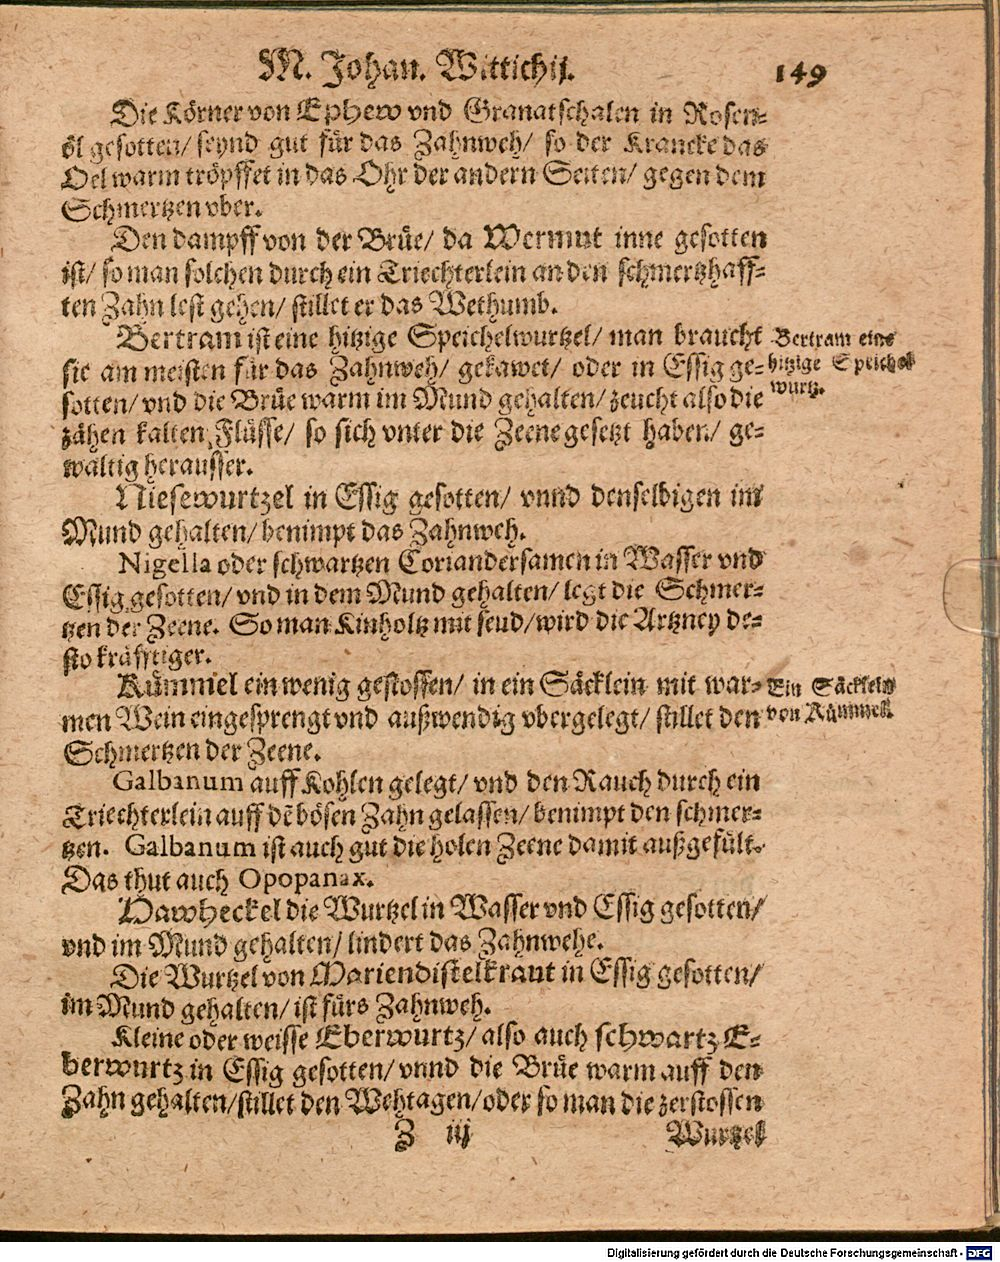 M. Johan. Wittichij. 149
Die Körner von Ephew vnd Granatschalen in Rosen-
öl gesotten/ seynd gut für das Zahnweh/ so der Krancke das
Oel warm tröpffet in das Ohr der andern Seiten/ gegen dem
Schmertzen vber.
Den dampff von der Brüe/ da Wermut inne gesotten
ist/ so man solchen durch ein Triechterlein an den schmertzhaff-
ten Zahn lest gehen/ stillet er das Wethumb.
Bertram ist eine hitzige Speichelwurtzel/ man braucht
sie am meisten für das Zahnweh/ gekawet/ oder in Essig ge-
sotten/ vnd die Brüe warm im Mund gehalten/ zeucht also die
zähen kalten Flüsse/ so sich vnter die Zeene gesetzt haben/ ge-
wältig herausser.
Bertram eine
hitzige Speichel
wurtz.
Niesewurtzel in Essig gesotten/ vnnd denselbigen im
Mund gehalten/ benimpt das Zahnweh.
Nigella oder schwartzen Coriandersamen in Wasser vnd
Essig gesotten/ vnd in dem Mund gehalten/ legt die Schmer-
tzen der Zeene. So man Kinholtz mit seud/ wird die Artzney de-
sto kräfftiger.
Kümmel ein wenig gestossen/ in ein Säcklein mit war-
men Wein eingesprengt vnd außwendig vbergelegt/ stillet den
Schmertzen der Zeene.
Ein Säcklein
von Kümmel.
Galbanum auff Kohlen gelegt/ vnd den Rauch durch ein
Triechterlein auff dẽ bösen Zahn gelassen/ benimpt den schmer-
tzen. Galbanum ist auch gut die holen Zeene damit außgefült.
Das thut auch Opopanax.
Hawheckel die Wurtzel in Wasser vnd Essig gesotten/
vnd im Mund gehalten/ lindert das Zahnwehe.
Die Wurtzel von Mariendistelkraut in Essig gesotten/
im Mund gehalten/ ist fürs Zahnweh.
Kleine oder weisse Eberwurtz/ also auch schwartz E-
berwurtz in Essig gesotten/ vnnd die Brüe warm auff den
Zahn gehalten/ stillet den Wehtagen/ oder so man die zerstossen
Z iij Wurtzel
Digitalisierung gefördert durch die Deutsche Forschungsgemeinschaft - DFG